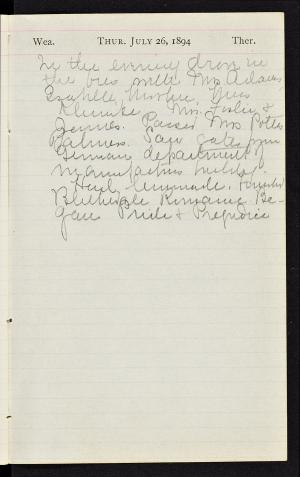 Wea. THUR. JULY 26, 1894 Ther.
In the evening drove in
the bus with Mrs Adams
Isabelle, Mrs
Klumke. Mr. Foster &
James. Passed Mrs Potter
Palmer. Saw gates from
German department of
Manufactures build'g.
Had lemonade. Finished
Blithedale Romance Be-
gan Pride & Prejudice